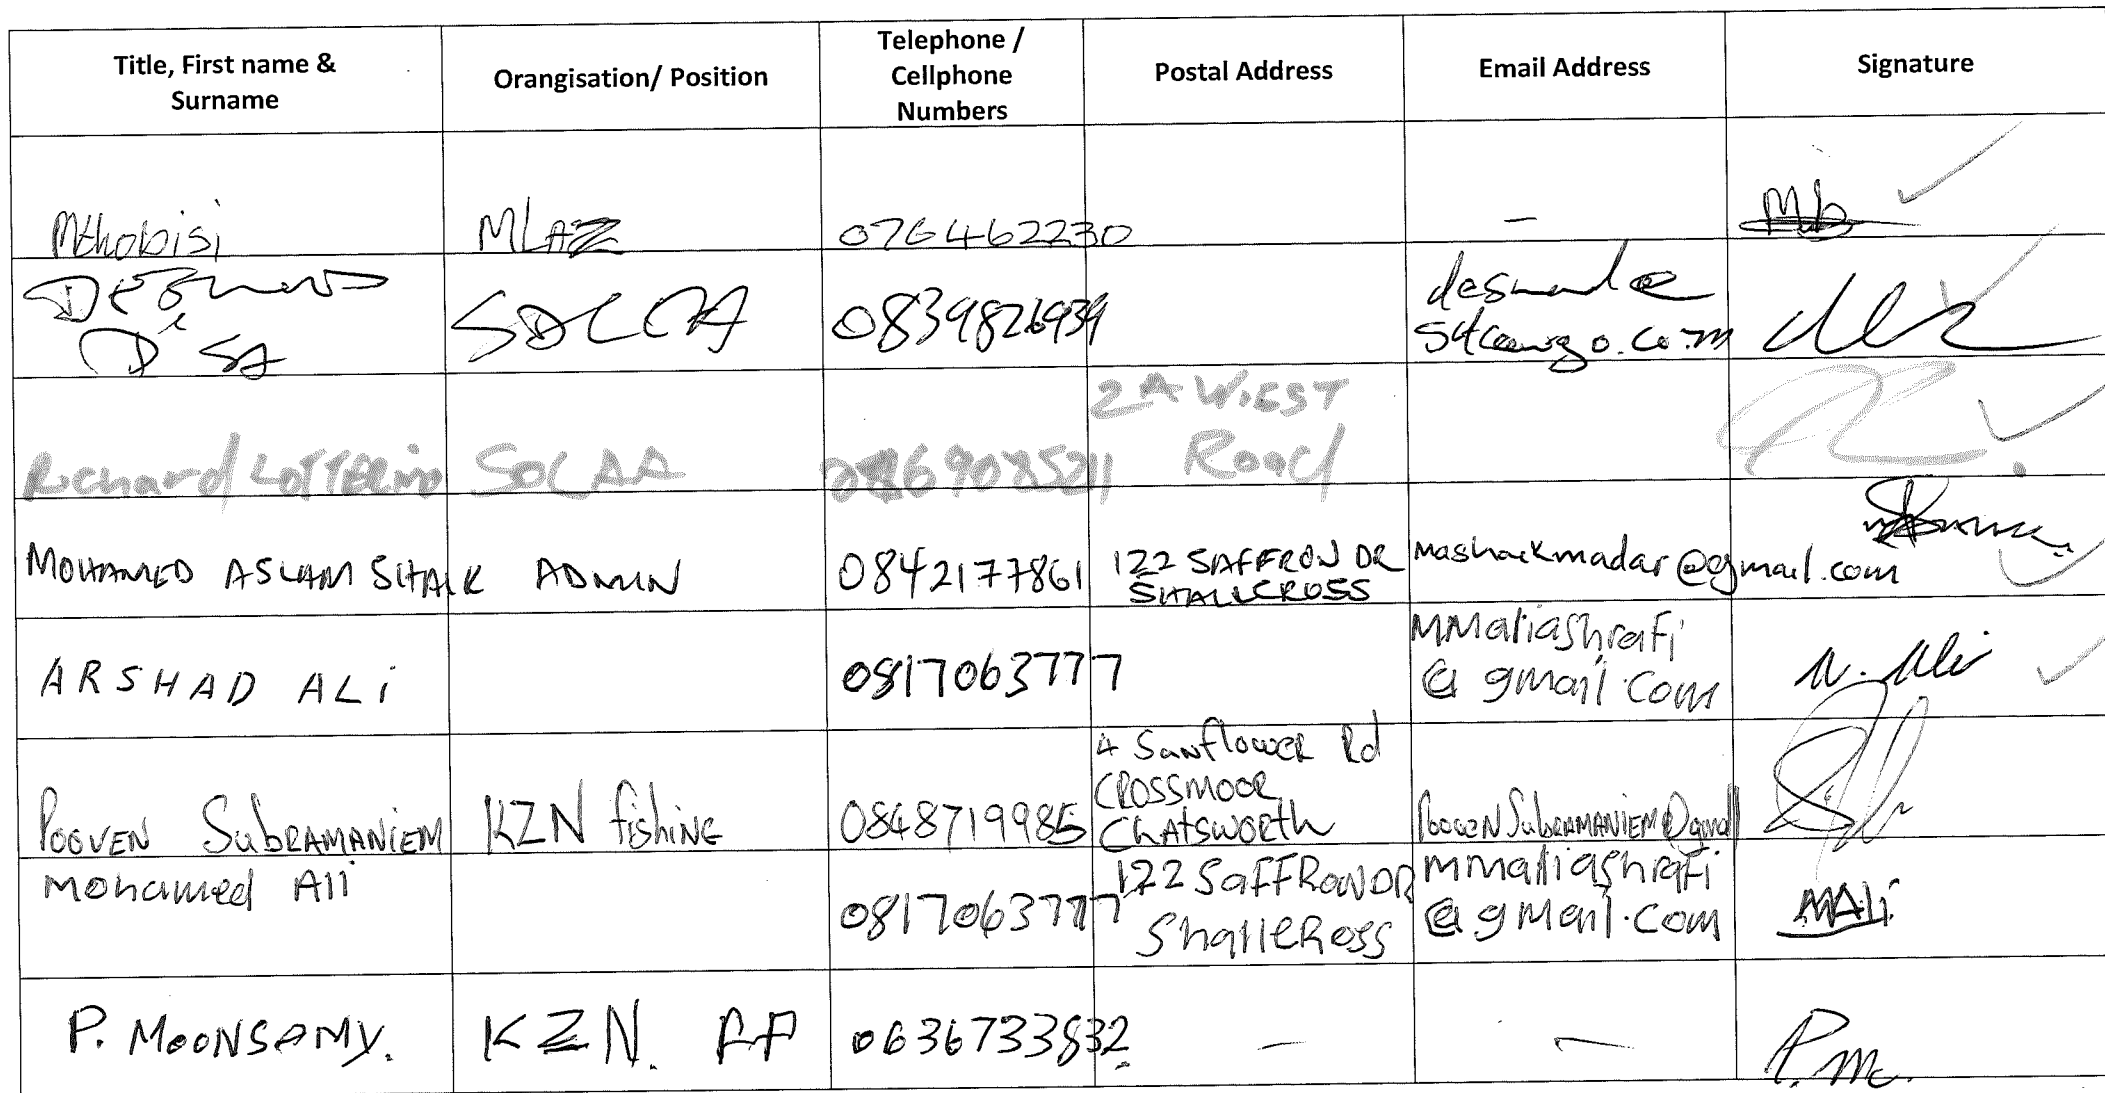 Title, First name & Surname	Orangisation/ Position	Telephone / Cellphone Numbers	Postal Address	Email Address	Signature
Mthobisi	MLAZ	0764462230		–	Mb
Desmond D'SA	SDCEA	0839826939
Richard LOTTERING	SDCEA		2A WIEST Road
MOHAMED ASLAM SHAIK	ADMIN	0842177861	122 SAFFRON DR SHALLCROSS	mashaikmadar@gmail.com
ARSHAD ALi		0817063777		mmaliashrafi @ gmail.com	N. Ali
POOVEN SubRAMANIEM	KZN fishing	0848719985	4 Sunflower Rd CROSSMOOR Chatsworth	PoovenSubRAMANIEM@gmail
Mohamed Ali		0817063777	122 SaffRon DR ShallCRoss	mmaliashrafi @ gmail.com	MALi
P. MOONSAMY.	KZN. FF	0636733832	–	–	P.m.